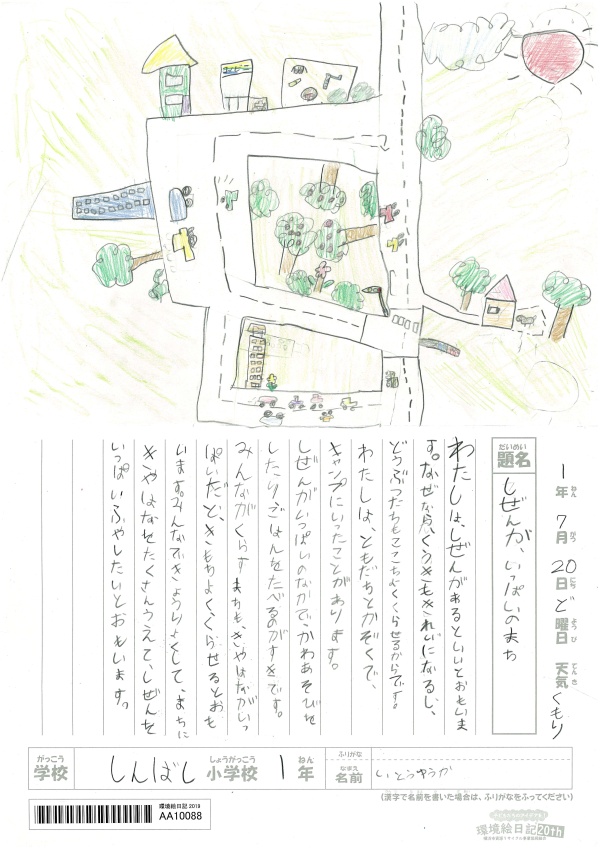 コンビニ
1年 7月 20日 ど曜日 天気 くもり
ねん がつ にち ようび てんき
だいめい
題名
しぜんが、いっぱいのまち
わたしは、しぜんがあるといいとおもいま
す。なぜなら、くうきもきれいになるし、
どうぶつたちもここちよくくらせるからです。
わたしは、ともだちとかぞくで、
キャンプにいったことがあります。
しぜんがいっぱいのなかで、かわあそびを
したりごはんをたべるのがすきです。
みんながくらすまちも、きやはながいっ
ぱいだと、きもちよくくらせるとおも
います。みんなできょうりょくして、まちに
きやはなをたくさんうえて、しぜんを
いっぱいふやしたいとおもいます。
がっこう
学校
しんばし
しょうがっこう
小学校
1年
ねん
ふりがな
なまえ
名前
いとうゆうか
(漢字で名前を書いた場合は、ふりがなをふってください)
環境絵日記 2019
AA10088
環境絵日記 20th